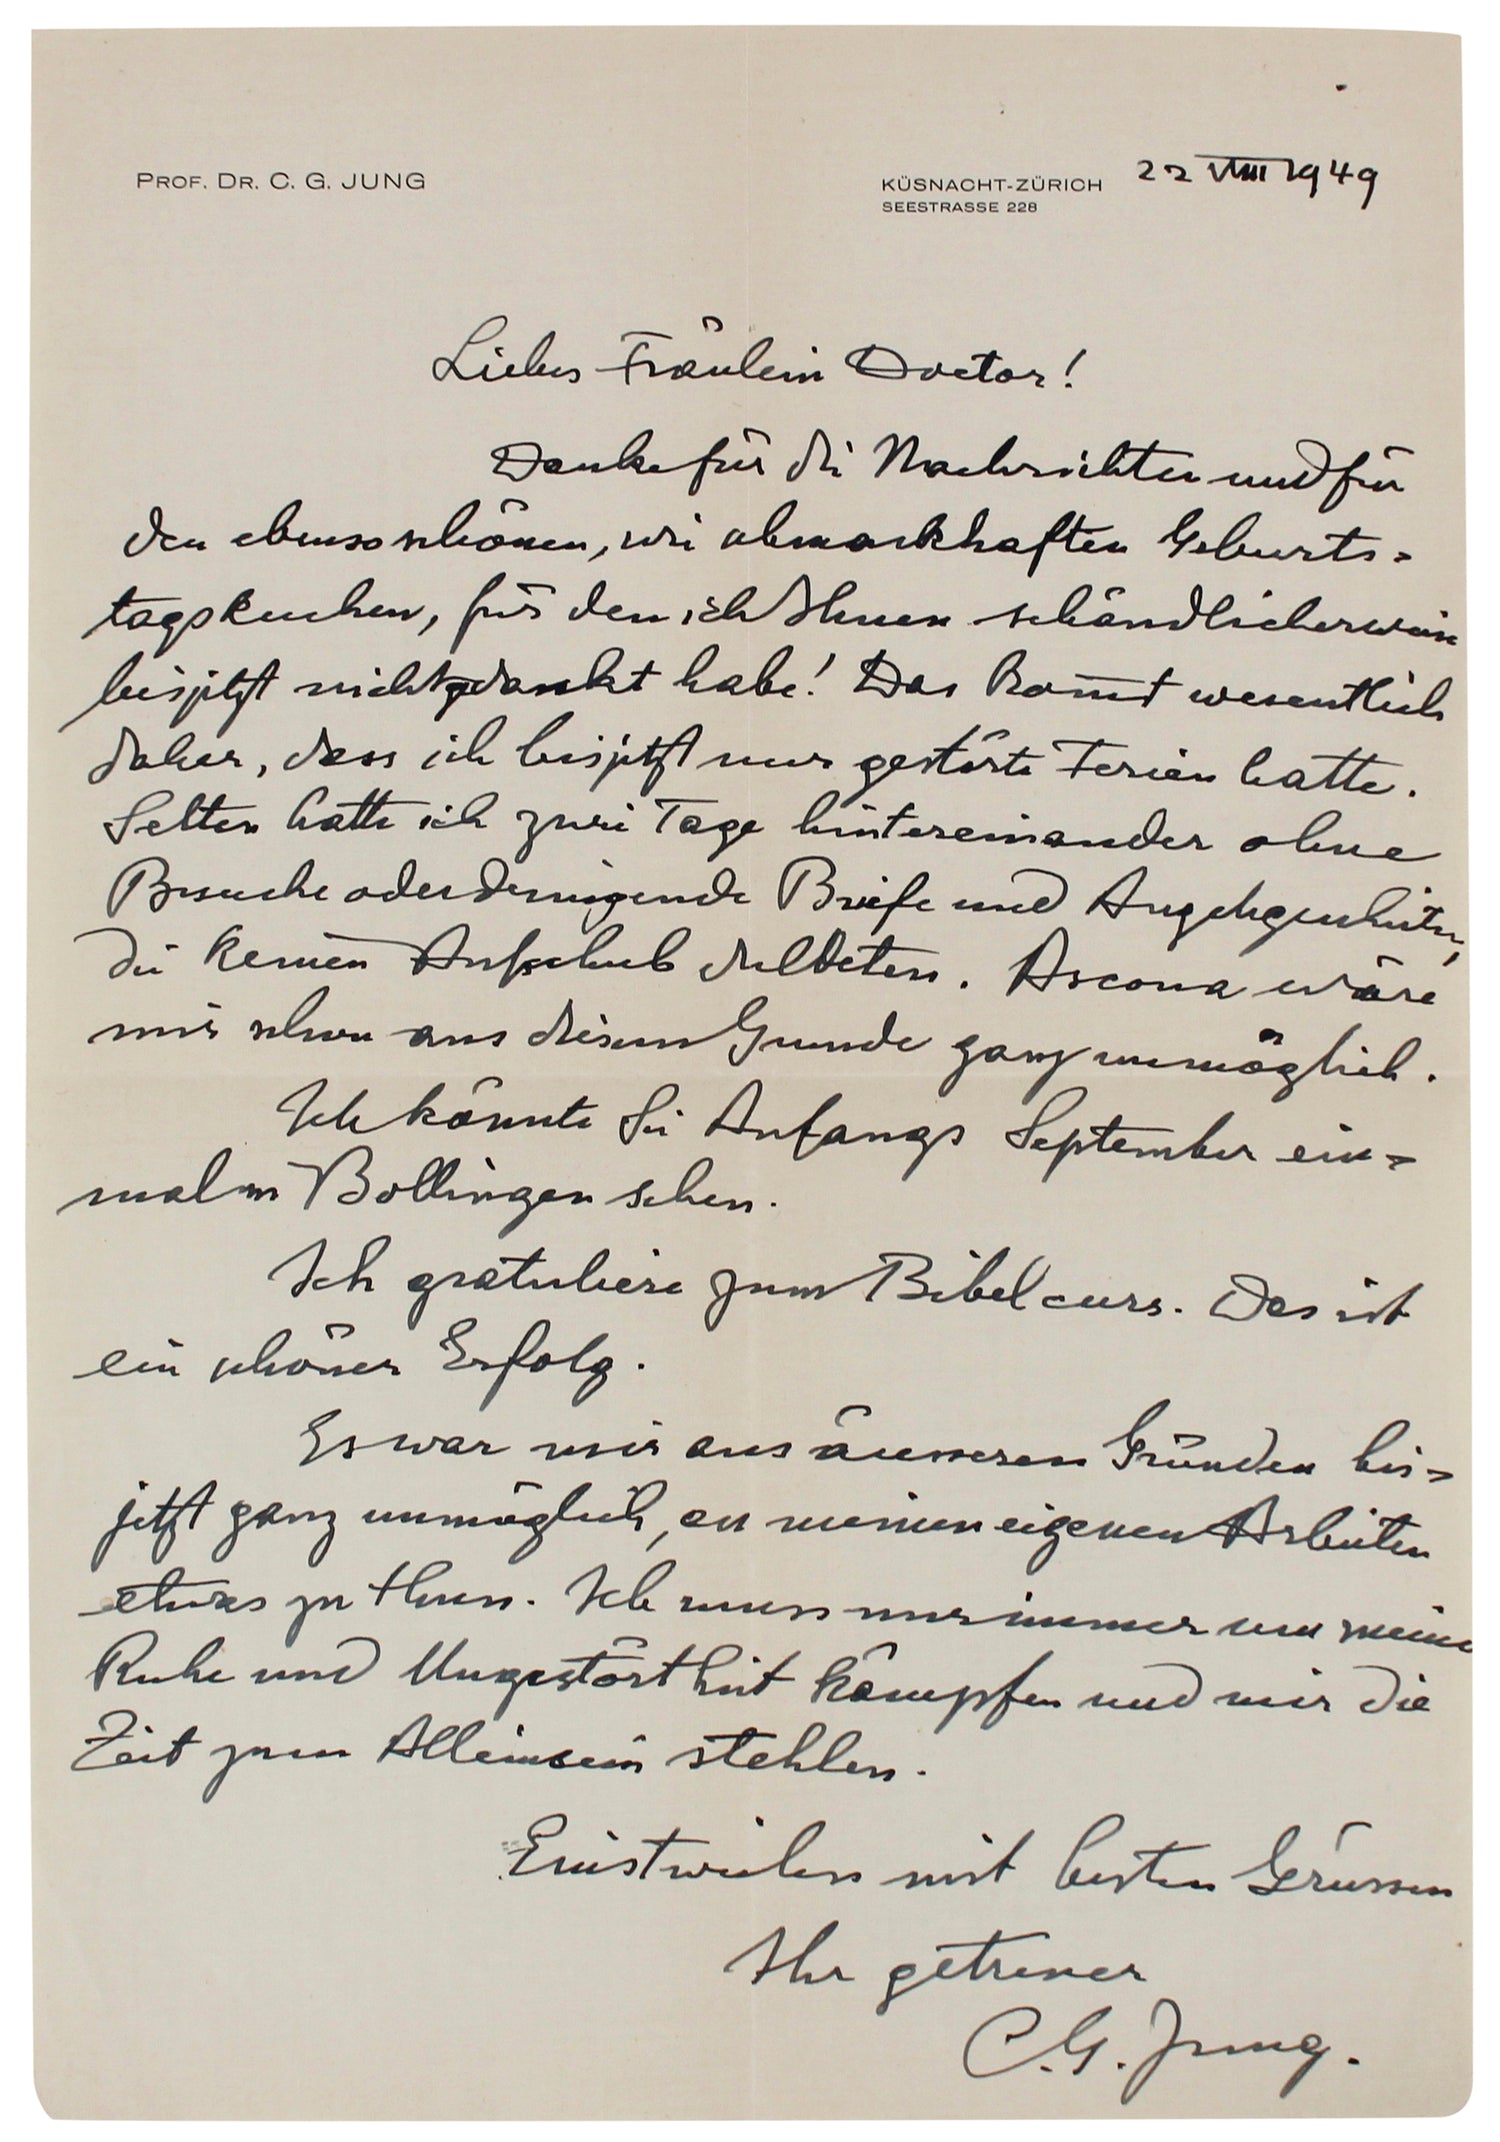 PROF. DR. C. G. JUNG
KÜSNACHT-ZÜRICH
SEESTRASSE 228
22 VIII 1949
Liebes Fräulein Doctor!
Danke für die Nachrichten und für
den ebenso schönen, wie schmackhaften Geburts=
tagskuchen, für den ich Ihnen schändlicherweise
bis jetzt nicht gedankt habe! Das kom̅t wesentlich
daher, dass ich bis jetzt nur gestörte Ferien hatte.
Selten hatte ich zwei Tage hintereinander ohne
Besuche oder dringende Briefe und Angelegenheiten,
die keinen Aufschub duldeten. Ascona wäre
mir schon aus diesem Grunde ganz unmöglich.
Ich könnte Sie Anfangs September ein=
mal in Bollingen sehen.
Ich gratuliere zum Bibelcurs. Das ist
ein schöner Erfolg.
Es war mir aus äusseren Gründen bis=
jetzt ganz unmöglich, an meinen eigenen Arbeiten
etwas zu thun. Ich muss nur immer um meine
Ruhe und Ungestörtheit kämpfen und mir die
Zeit zum Alleinsein stehlen.
Einstweilen mit besten Grüssen
Ihr getreuer
C. G. Jung.